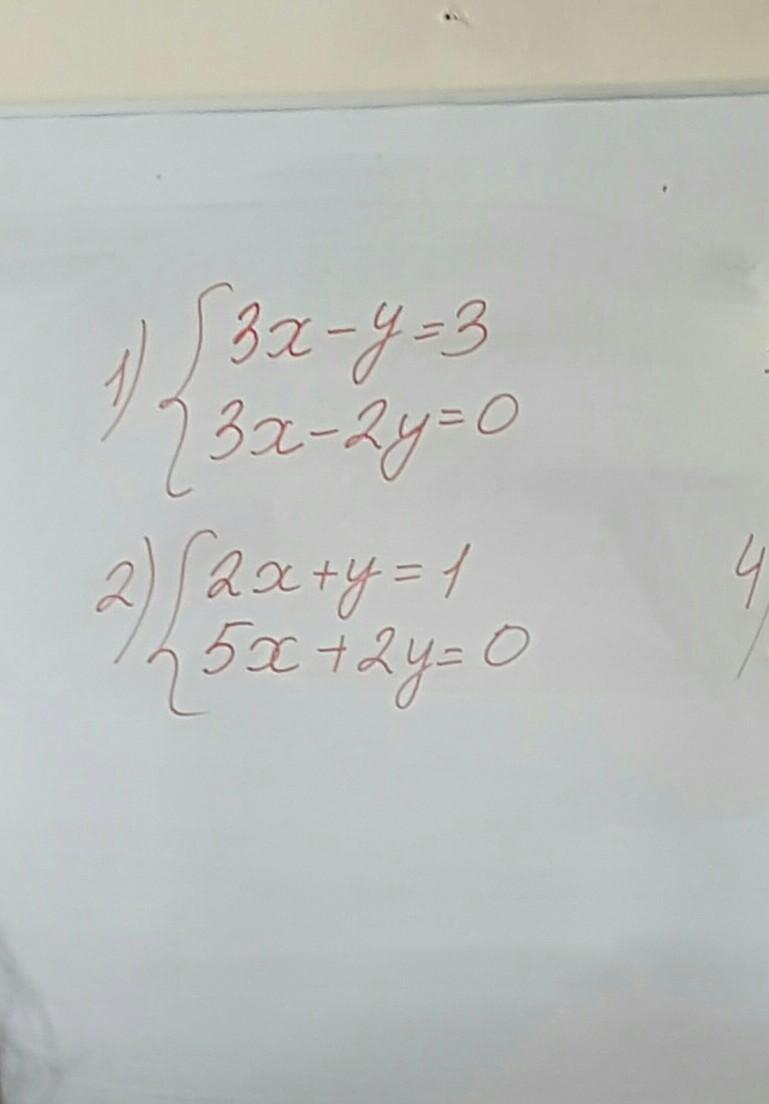 1) { 3x-y=3
3x-2y=0
2) { 2x+y=1
5x+2y=0
4)